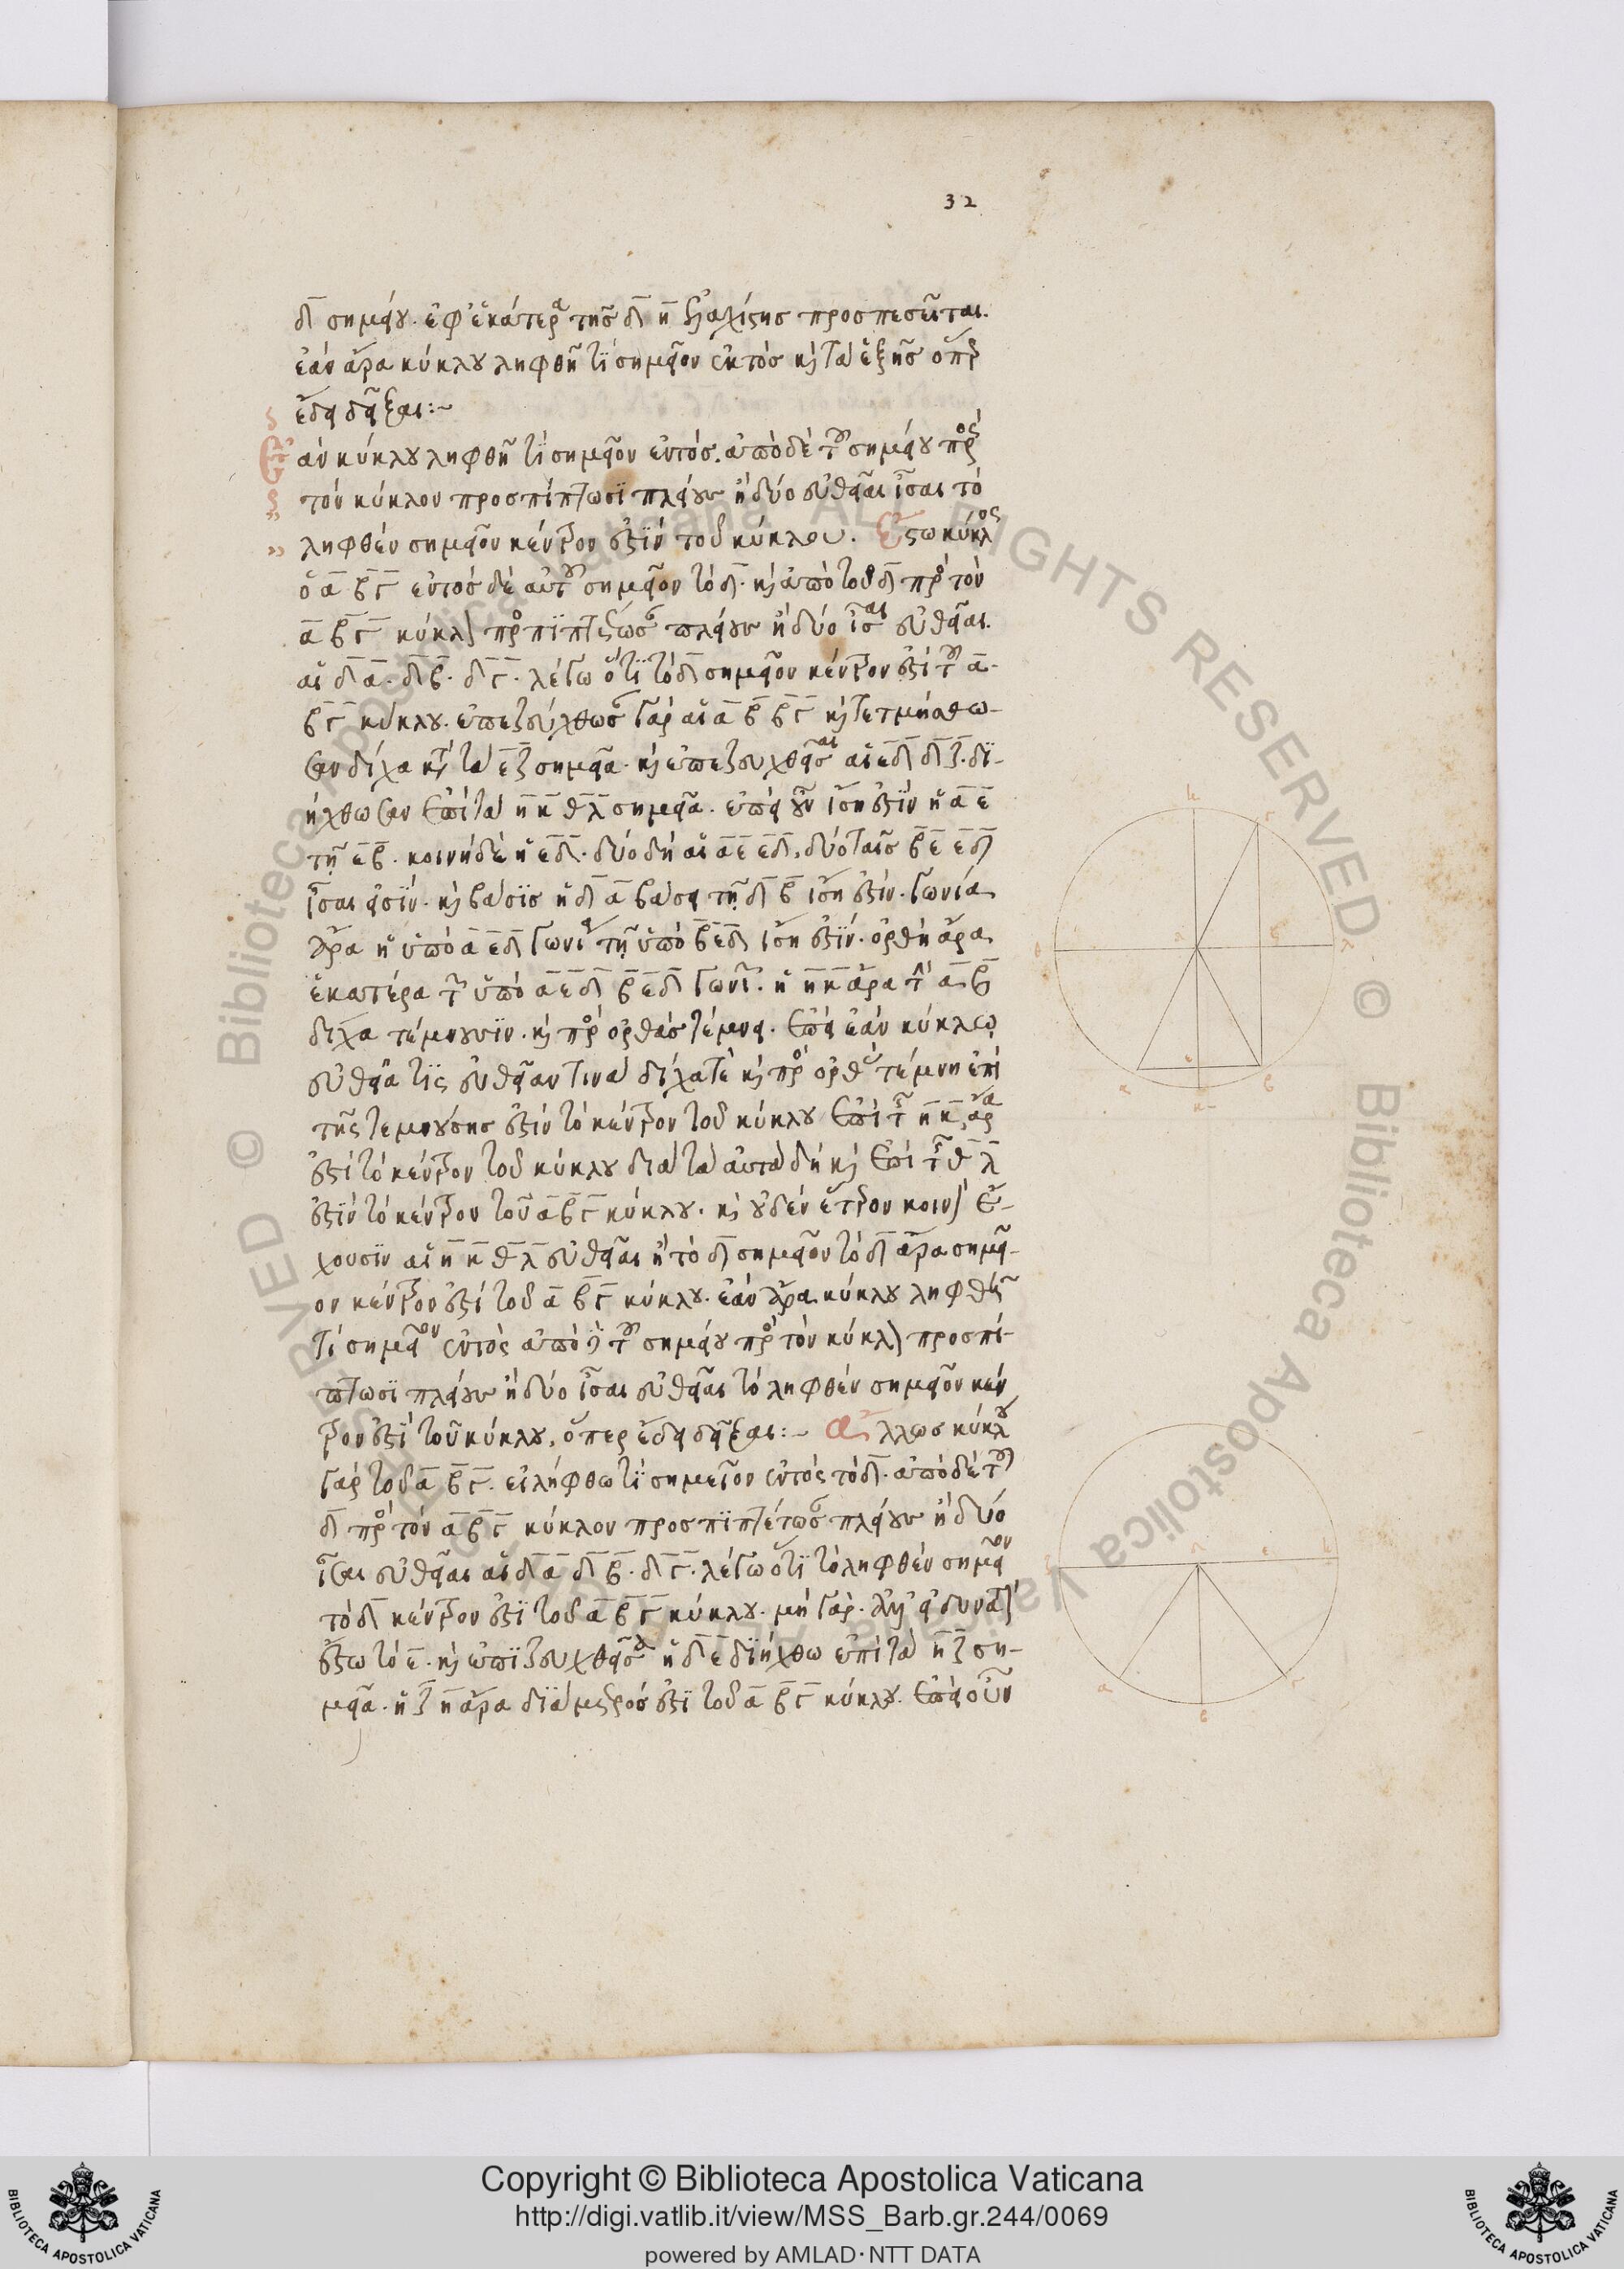 32
δ̅ σημείου. ἐφ ἑκάτερα τῆς δ̅ η̅ ἐλαχίστης προσπεσεῖται.
ἐὰν ἄρα κύκλου ληφθῆ τι σημεῖον ἐκτὸς καὶ τὰ ἑξῆς ὅπερ
ἔδει δεῖξαι:~
Ἐὰν κύκλου ληφθῆ τι σημεῖον ἐντός. ἀπὸ δὲ τοῦ σημείου πρὸς
τὸν κύκλον προσπίπτωσι πλείους ἢ δύο εὐθεῖαι ἴσαι τὸ
ληφθὲν σημεῖον κέντρον ἐστὶν τοῦ κύκλου. Ἔστω κύκλος
ὁ α̅ β̅ γ̅ ἐντὸς δὲ αὐτοῦ σημεῖον τὸ δ̅. καὶ ἀπὸ τοῦ δ̅ πρὸς τὸν
α̅ β̅ γ̅ κύκλον προσπιπτέτωσαν πλείους ἢ δύο ἴσαι εὐθεῖαι.
αἱ δ̅ α̅. δ̅ β̅. δ̅ γ̅. λέγω ὅτι τὸ δ̅ σημεῖον κέντρον ἐστὶ τοῦ α̅.
β̅ γ̅ κύκλου. ἐπεζεύχθωσαν γὰρ αἱ α̅ β̅ β̅ γ̅ καὶ τετμήσθω-
σαν δίχα κατὰ τὰ ε̅ ζ̅ σημεῖα. καὶ ἐπεζευχθεῖσαι αἱ ε̅ δ̅ δ̅ ζ̅. δι-
ήχθωσαν ἐπὶ τὰ η̅ κ̅ θ̅ λ̅ σημεῖα. ἐπεὶ οὖν ἴση ἐστὶν ἡ α̅ ε̅
τῇ ε̅ β̅. κοινὴ δὲ ἡ ε̅ δ̅. δύο δὴ αἱ α̅ ε̅ ε̅ δ̅, δύο ταῖς β̅ ε̅ ε̅ δ̅
ἴσαι εἰσίν. καὶ βάσις ἡ δ̅ α̅ βάσει τῇ δ̅ β̅ ἴση ἐστίν. γωνία
ἄρα ἡ ὑπὸ α̅ ε̅ δ̅ γωνίᾳ τῇ ὑπὸ β̅ ε̅ δ̅ ἴση ἐστίν. ὀρθὴ ἄρα
ἑκατέρα τῶν ὑπὸ α̅ ε̅ δ̅ β̅ ε̅ δ̅ γωνιῶν. ἡ η̅ κ̅ ἄρα τὴν α̅ β̅
δίχα τέμνουσιν. καὶ πρὸς ὀρθὰς τέμνει. ἐπεὶ ἐὰν κύκλῳ
εὐθεῖα τις εὐθεῖαν τινὰ δίχα τὲ καὶ πρὸς ὀρθὰς τέμνη ἐπὶ
τῆς τεμνούσης ἐστὶν τὸ κέντρον τοῦ κύκλου ἐπὶ τῆς η̅ κ̅ ἄρα
ἐστὶ τὸ κέντρον τοῦ κύκλου διὰ τὰ αὐτὰ δὴ καὶ ἐπὶ τῆς θ̅ λ̅
ἐστὶν τὸ κέντρον τοῦ α̅ β̅ γ̅ κύκλου. καὶ οὐδὲν ἕτερον κοινὸν ἔ-
χουσιν αἱ η̅ κ̅ θ̅ λ̅ εὐθεῖαι ἢ τὸ δ̅ σημεῖον τὸ δ̅ ἄρα σημεῖ-
ον κέντρον ἐστὶ τοῦ α̅ β̅ γ̅ κύκλου. ἐὰν ἄρα κύκλου ληφθῆ
τι σημεῖον ἐντὸς ἀπὸ δὲ τοῦ σημείου πρὸς τὸν κύκλον προσπί-
πτωσι πλείους ἢ δύο ἴσαι εὐθεῖαι τὸ ληφθὲν σημεῖον κέν
τρον ἐστὶ τοῦ κύκλου, ὅπερ ἔδει δεῖξαι:~ Ἄλλως κύκλου
γὰρ τοῦ α̅ β̅ γ̅. εἰλήφθω τι σημεῖον ἐντὸς τὸ δ̅. ἀπὸ δὲ τοῦ
δ̅ πρὸς τὸν α̅ β̅ γ̅ κύκλον προσπιπτέτωσαν πλείους ἢ δύο
ἴσαι εὐθεῖαι αἱ δ̅ α̅ δ̅ β̅. δ̅ γ̅. λέγω ὅτι τὸ ληφθὲν σημεῖον
τὸ δ̅ κέντρον ἐστὶ τοῦ α̅ β̅ γ̅ κύκλου. μὴ γάρ. ἀλλ' εἰ δυνατὸν
ἔστω τὸ ε̅. καὶ ἐπιζευχθεῖσα ἡ δ̅ ε̅ διήχθω ἐπὶ τὰ η̅ ζ̅ ση-
μεῖα. ἡ ζ̅ η̅ ἄρα διάμετρός ἐστι τοῦ α̅ β̅ γ̅ κύκλου. ἐπεὶ οὖν
Copyright © Biblioteca Apostolica Vaticana
http://digi.vatlib.it/view/MSS_Barb.gr.244/0069
powered by AMLAD·NTT DATA
BIBLIOTECA APOSTOLICA VATICANA
BIBLIOTECA APOSTOLICA VATICANA